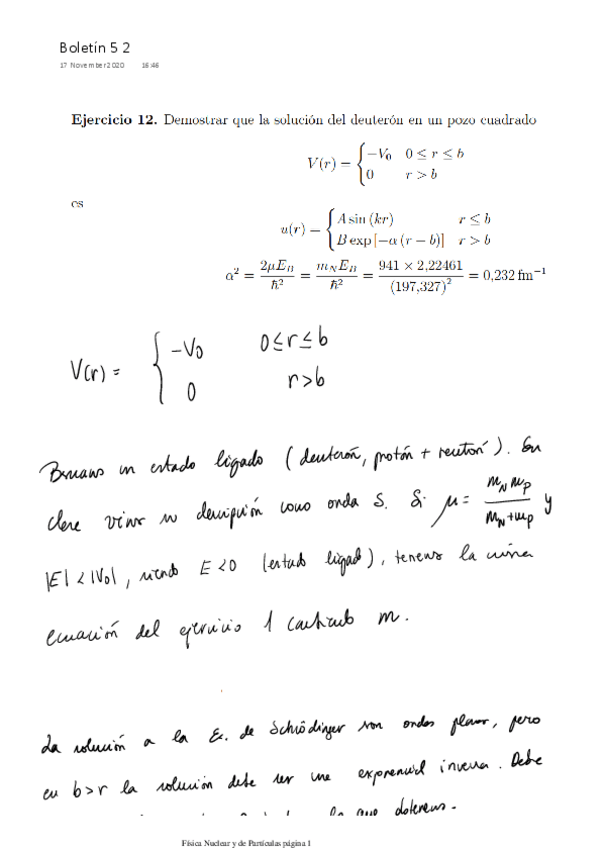 Boletín 5 2
17 November 2020 16:46
Ejercicio 12. Demostrar que la solución del deuterón en un pozo cuadrado
V(r) = { −V₀ 0 ≤ r ≤ b
0 r > b
es
u(r) = { A sin (kr) r ≤ b
B exp [−α (r − b)] r > b
α² = 2μE_B / ħ² = m_N E_B / ħ² = 941 × 2,22461 / (197,327)² = 0,232 fm⁻¹
V(r) = { −V₀ 0 ≤ r ≤ b
0 r > b
un estado ligado (deuterón, protón + neutrón). En
clase vimos su descripción como onda S. Si μ = m_N m_p / m_N + m_p y
|E| < |V₀|, siendo E < 0 (estado ligado), tenemos la misma
ecuación del ejercicio 1 cambiando m.
La solución a la Ec. de Schrödinger son ondas planas, pero
en b > r la solución debe ser una exponencial inversa. Debe
la que
Física Nuclear y de Partículas página 1